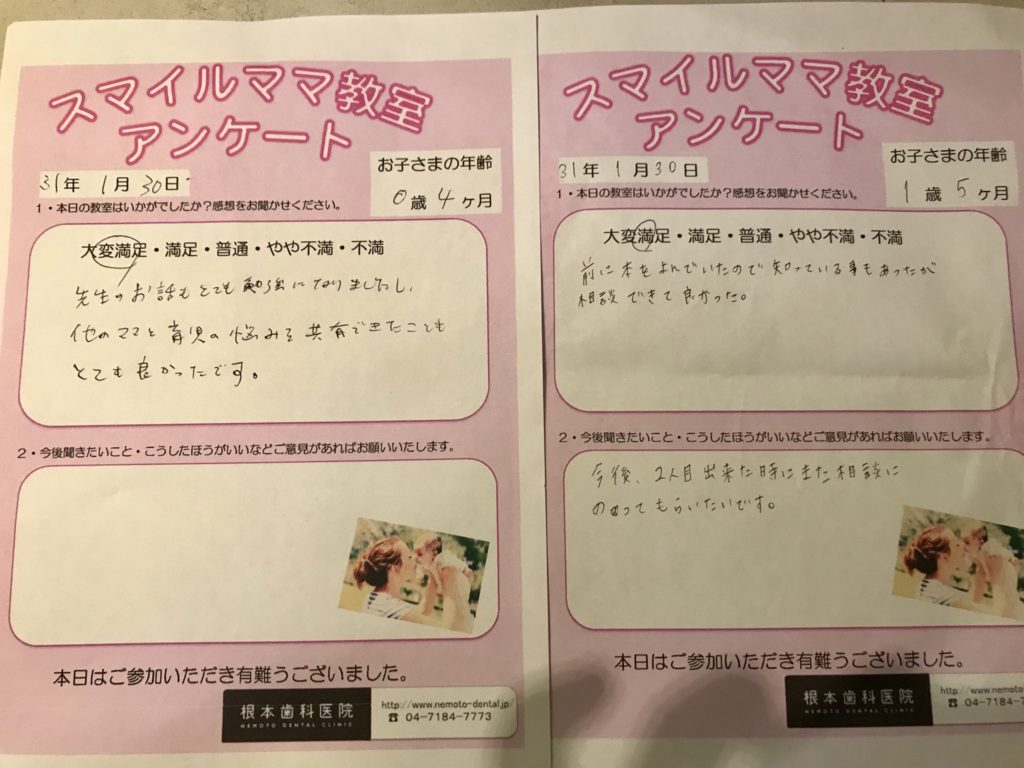 スマイルママ教室
アンケート
お子さまの年齢
31年 1月30日
0歳4ヶ月
1・本日の教室はいかがでしたか？感想をお聞かせください。
大変満足・満足・普通・やや不満・不満
先生のお話もとても勉強になりましたし、
他のママと育児の悩みを共有できたことも
とても良かったです。
2・今後聞きたいこと・こうしたほうがいいなどご意見があればお願いいたします。
本日はご参加いただき有難うございました。
根本歯科医院
NEMOTO DENTAL CLINIC
http://www.nemoto-dental.jp/
☎ 04-7184-7773
スマイルママ教室
アンケート
お子さまの年齢
31年 1月30日
1歳5ヶ月
1・本日の教室はいかがでしたか？感想をお聞かせください。
大変満足・満足・普通・やや不満・不満
前に本をよんでいたので知っている事もあったが
相談できて良かった。
2・今後聞きたいこと・こうしたほうがいいなどご意見があればお願いいたします。
今後、2人目出来た時にまた相談に
のってもらいたいです。
本日はご参加いただき有難うございました。
根本歯科医院
NEMOTO DENTAL CLINIC
http://www.nemoto-
☎ 04-7184-7